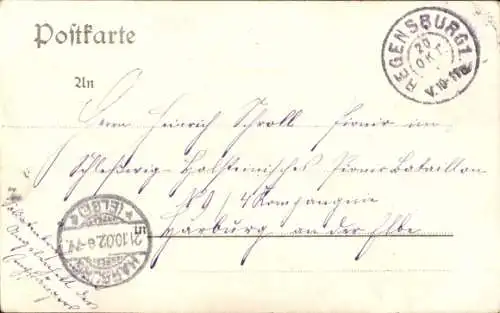 Postkarte
REGENSBURG 1.
20
OKT
V.10-11
An
Herrn Heinrich Schroll Pionir im
Schleßwig-Holsteinisches Pionir Bataillon
No 9 / 4 Kompangnie
in Harburg an der Elbe
HARBURG
21.10.02.6-7
(ELBE)
des